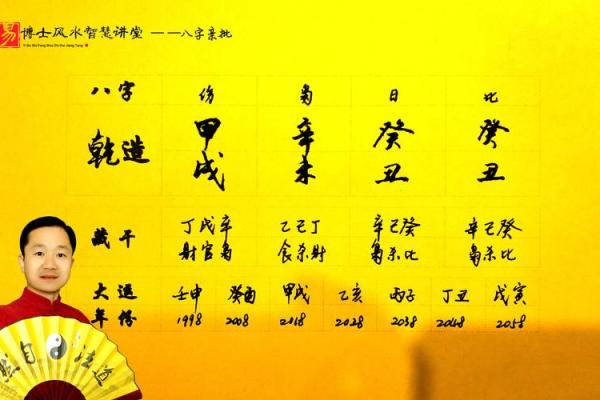 易 博士风水智慧讲堂 ——八字亲批
Yi Bo Shi Feng Shui Zhi Hui Jiang Tang
八字 伤 枭 日 比
乾造 甲 辛 癸 癸
戌 未 丑 丑
藏干 丁戊辛 乙己丁 辛己癸 辛己癸
财官枭 食杀财 枭杀比 枭杀比
大运 壬申 癸酉 甲戌 乙亥 丙子 丁丑 戊寅
年份 1998 2008 2018 2028 2038 2048 2058
道法自然